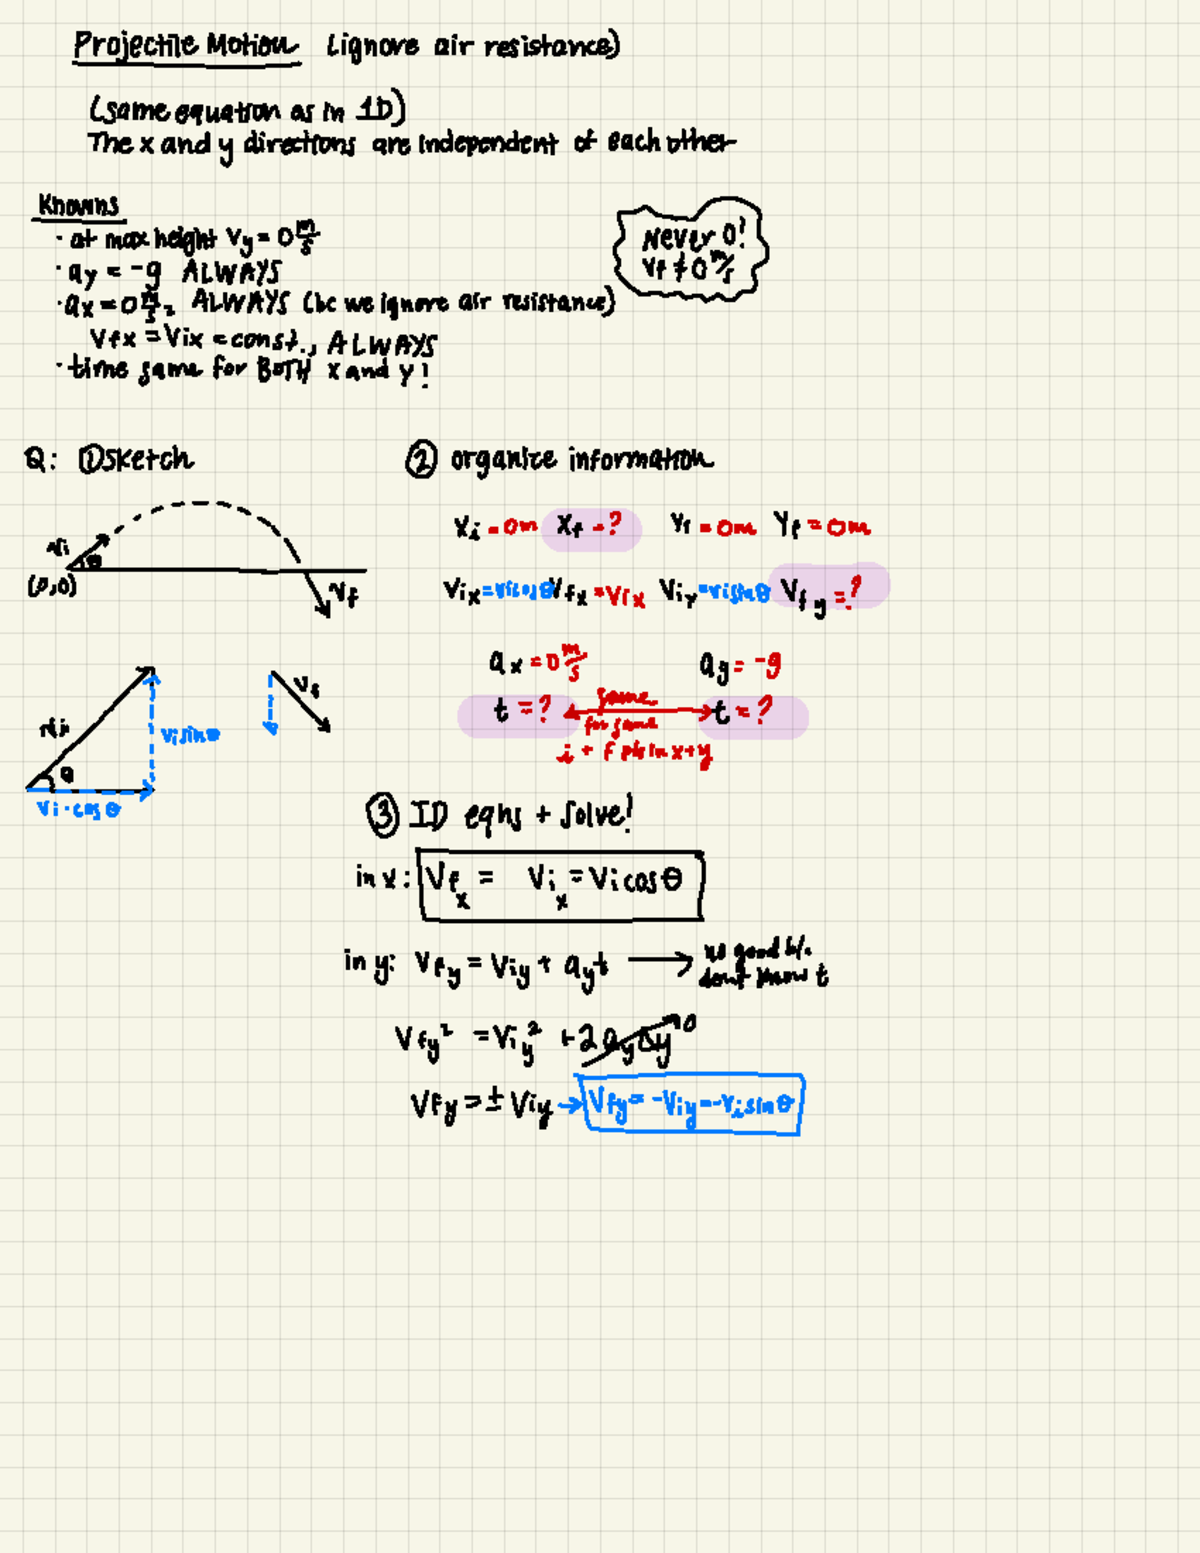 Projectile Motion (ignore air resistance)
(same equation as in 1D)
The x and y directions are independent of each other
Knowns
· at max height Vy = 0 m/s
· ay = -g ALWAYS
· ax = 0 m/s² ALWAYS (bc we ignore air resistance)
Vfx = Vix = const., ALWAYS
· time same for BOTH x and y!
Never 0!
Vf ≠ 0 m/s
Q: ① Sketch
Vi
θ
(0,0)
Vf
Vi
θ
Vi sinθ
Vi · cos θ
Vf
② organize information
Xi = 0m Xf = ? Yi = 0m Yf = 0m
Vix = Vicosθ Vfx = Vix Viy = Visinθ Vfy = ?
ax = 0 m/s ay = -g
t = ? same t = ?
for same
i + f pts in x+y
③ ID eqns + solve!
in x: Vfx = Vix = Vi cos θ
in y: Vfy = Viy + ayt → no good b/c
dont know t
Vfy² = Viy² + 2ayΔy 0
Vfy = ± Viy → Vfy = -Viy = -Vi sinθ